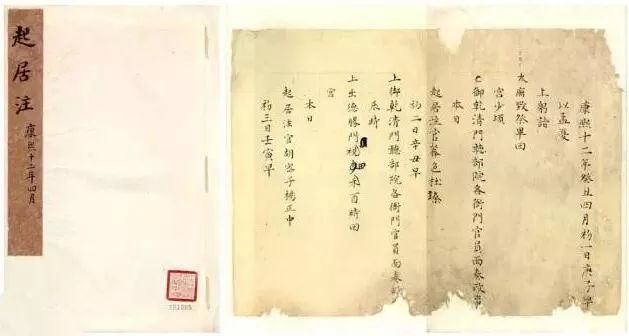 起居注
康熙十二年四月
康熙十二年癸丑四月初一日庚子早
以孟夏
上躬詣
太廟致祭畢回
宮少頃
上御乾清門聽部院各衙門官員面奏政事
本日
起居注官莽色杜臻
初二日辛丑早
上御乾清門聽部院各衙門官員面奏
辰時
上出德勝門視禾酉時回
宮
本日
起居注官胡密子楊正中
初三日壬寅早